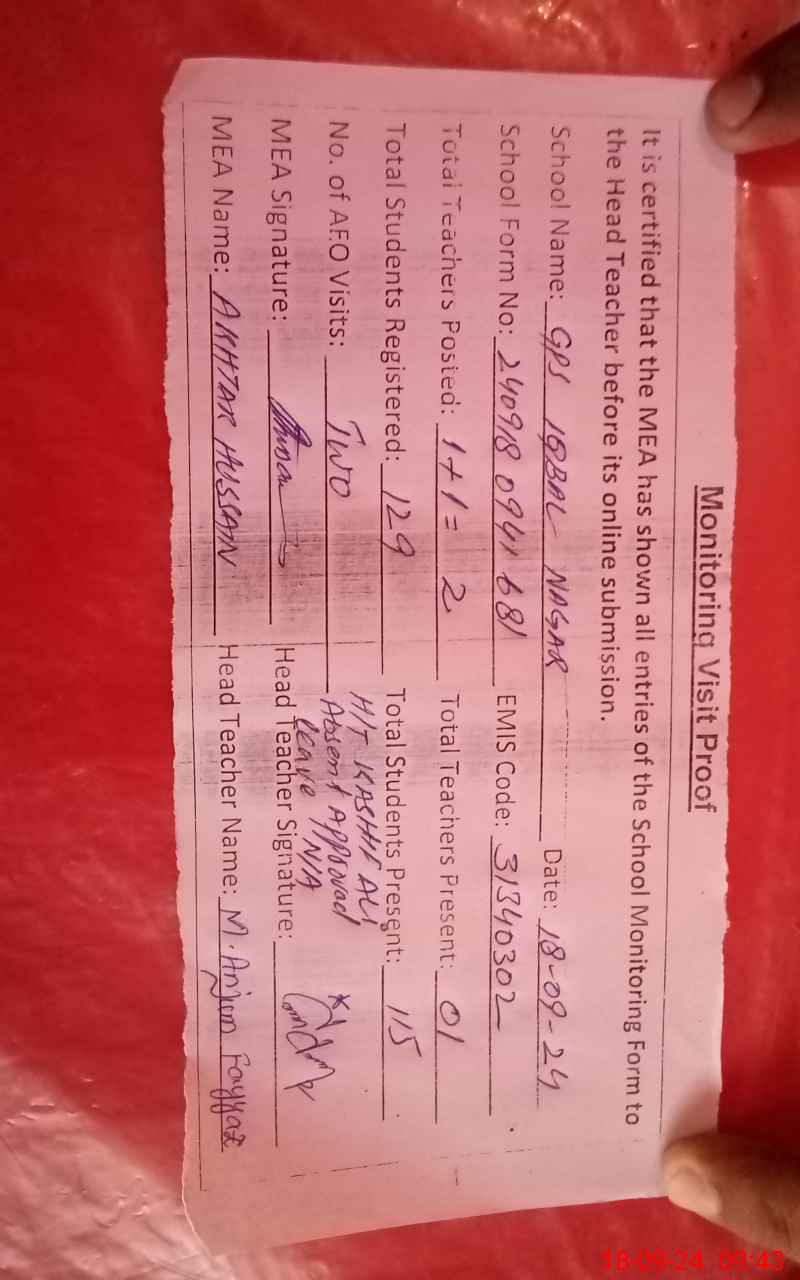 Monitoring Visit Proof
It is certified that the MEA has shown all entries of the School Monitoring Form to
the Head Teacher before its online submission.
School Name: GPS IQBAL NAGAR Date: 18-09-24
School Form No: 240918 0941 681 EMIS Code: 31340302
Total Teachers Posted: 1+1= 2 Total Teachers Present: 01
Total Students Registered: 129 Total Students Present: 115
No. of AEO Visits: TWO
H/T KASHIF ALI
Absent Approved
leave N/A
MEA Signature: Head Teacher Signature:
MEA Name: AKHTAR HUSSAIN Head Teacher Name: M. Anjum Fayyaz
18-09-24 09:43